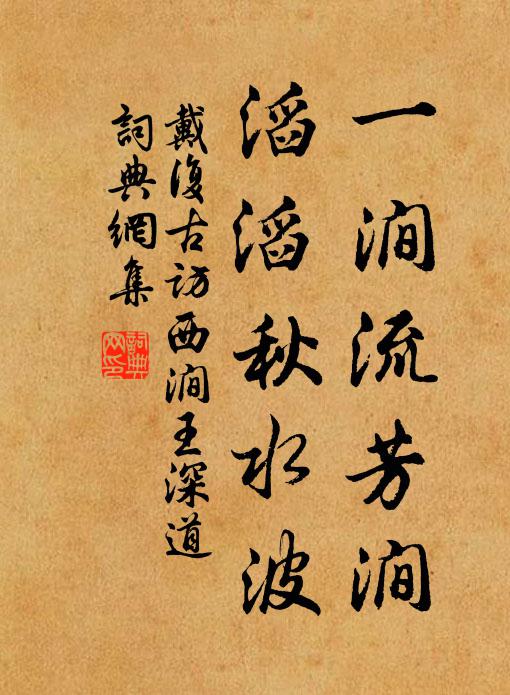 一澗流芳澗
滔滔秋水波
戴復古訪西澗王深道
詞典網集
詞典